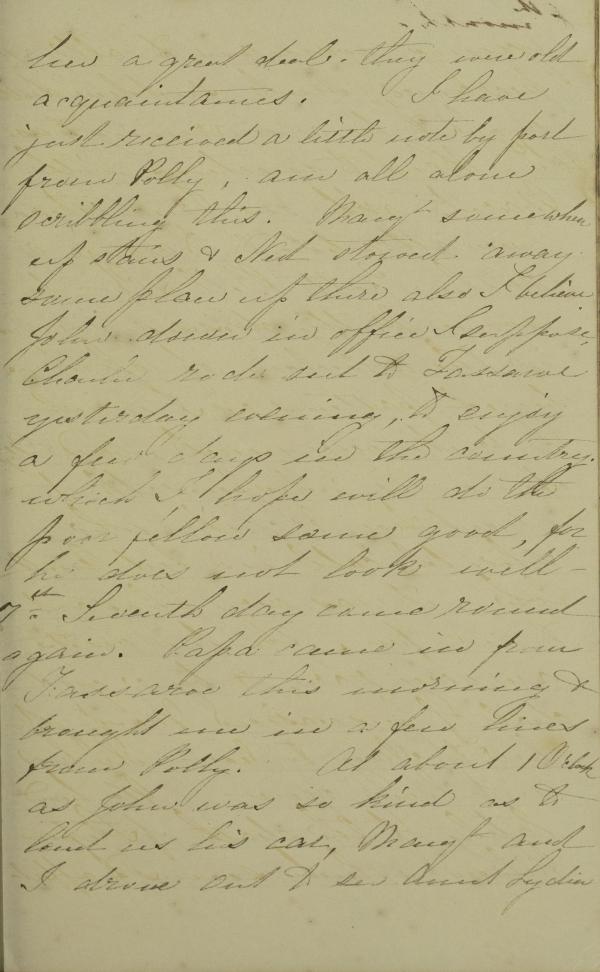 her a great deal. they were old
acquaintances. I have
just received a little note by post
from Polly, am all alone
scribbling this. Margt somewhere
up stairs & Ned stowed away
some place up there also I believe
John down in office I suppose,
Charlie rode out to Fassaroe
yesterday evening, to enjoy
a few days in the country.
which I hope will do the
poor fellow some good, for
he does not look well -
7th Seventh day come round
again. Papa came in from
Fassaroe this morning &
brought me in a few lines
from Polly. At about 1 O'clock
as John was so kind as to
lend us his car, Margt and
I drove out to see Aunt Lydia